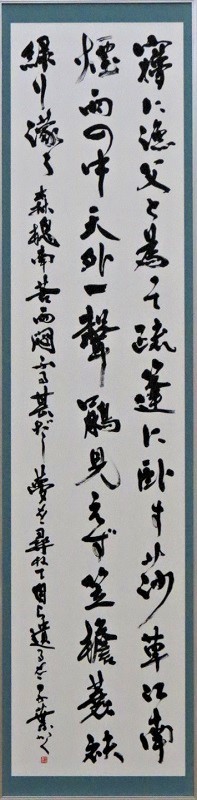 に漁父と為て疏蓬に臥す 江南
煙雨の中天外一聲鷗見えず笠檐蓑袂
緑り濛々 森槐南苦雨悶ふる甚だし夢を尋ねて自ら遣る